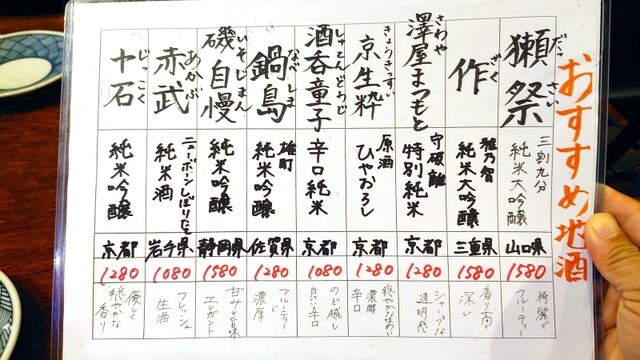 おすすめ地酒
獺祭
だっさい
三割九分
純米大吟醸
山口県
1580
綺麗で
フルーティー
作
ざく
雅乃智
純米大吟醸
三重県
1580
香り高く
深い
澤屋まつもと
さわや
守破離
特別純米
京都
1280
シャープな
透明感
京生粋
きょうきっすい
原酒
ひやおろし
京都
1280
穏やかな味わい
濃醇
辛口
酒呑童子
しゅてんどうじ
辛口純米
京都
1080
のど越し
良い辛口
鍋島
なべしま
雄町
純米吟醸
佐賀県
1280
フルーティーで
濃厚
磯自慢
いそじまん
純米吟醸
静岡県
1580
甘サと旨味
エレガント
赤武
あかぶ
ニューボーンしぼりたて
純米酒
岩手県
1080
フレッシュ
生酒
十石
じっこく
純米吟醸
京都
1280
優しく
穏やかな
香り